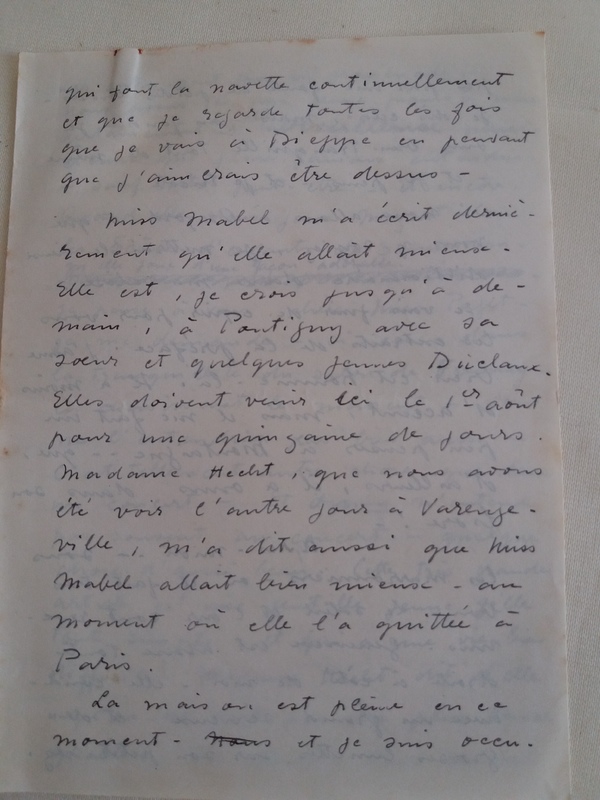 qui font la navette continuellement
et que je regarde toutes les fois
que je vais à Dieppe en pensant
que j'aimerais être dessus -
Miss Mabel m'a écrit derniè-
rement qu'elle allait mieux.
Elle est, je crois jusqu'à de-
main, à Pontigny avec sa
sœur et quelques jeunes Duclaux.
Elles doivent venir ici le 1er août
pour une quinzaine de jours.
Madame Hecht, que nous avons
été voir l'autre jour à Varenge-
ville, m'a dit aussi que Miss
Mabel allait bien mieux - au
moment où elle l'a quittée à
Paris.
La maison est pleine en ce
moment - nous et je suis occu-